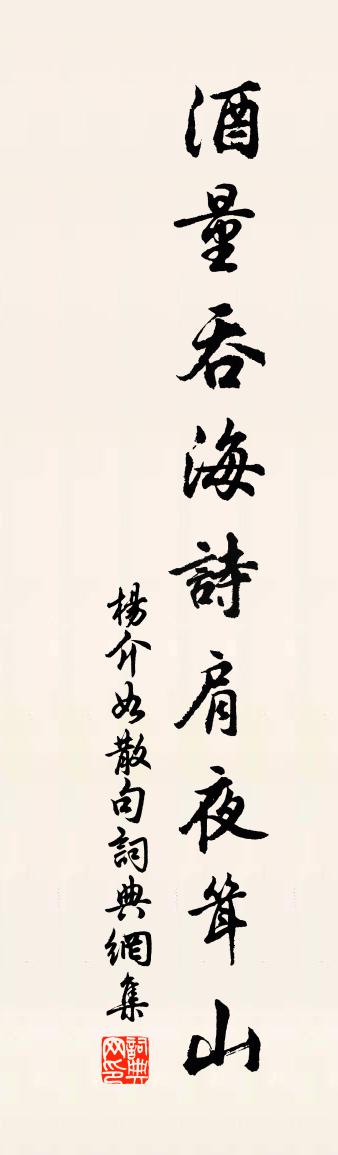 酒量吞海詩肩夜耸山
楊介如散句詞典網集
詞典网印